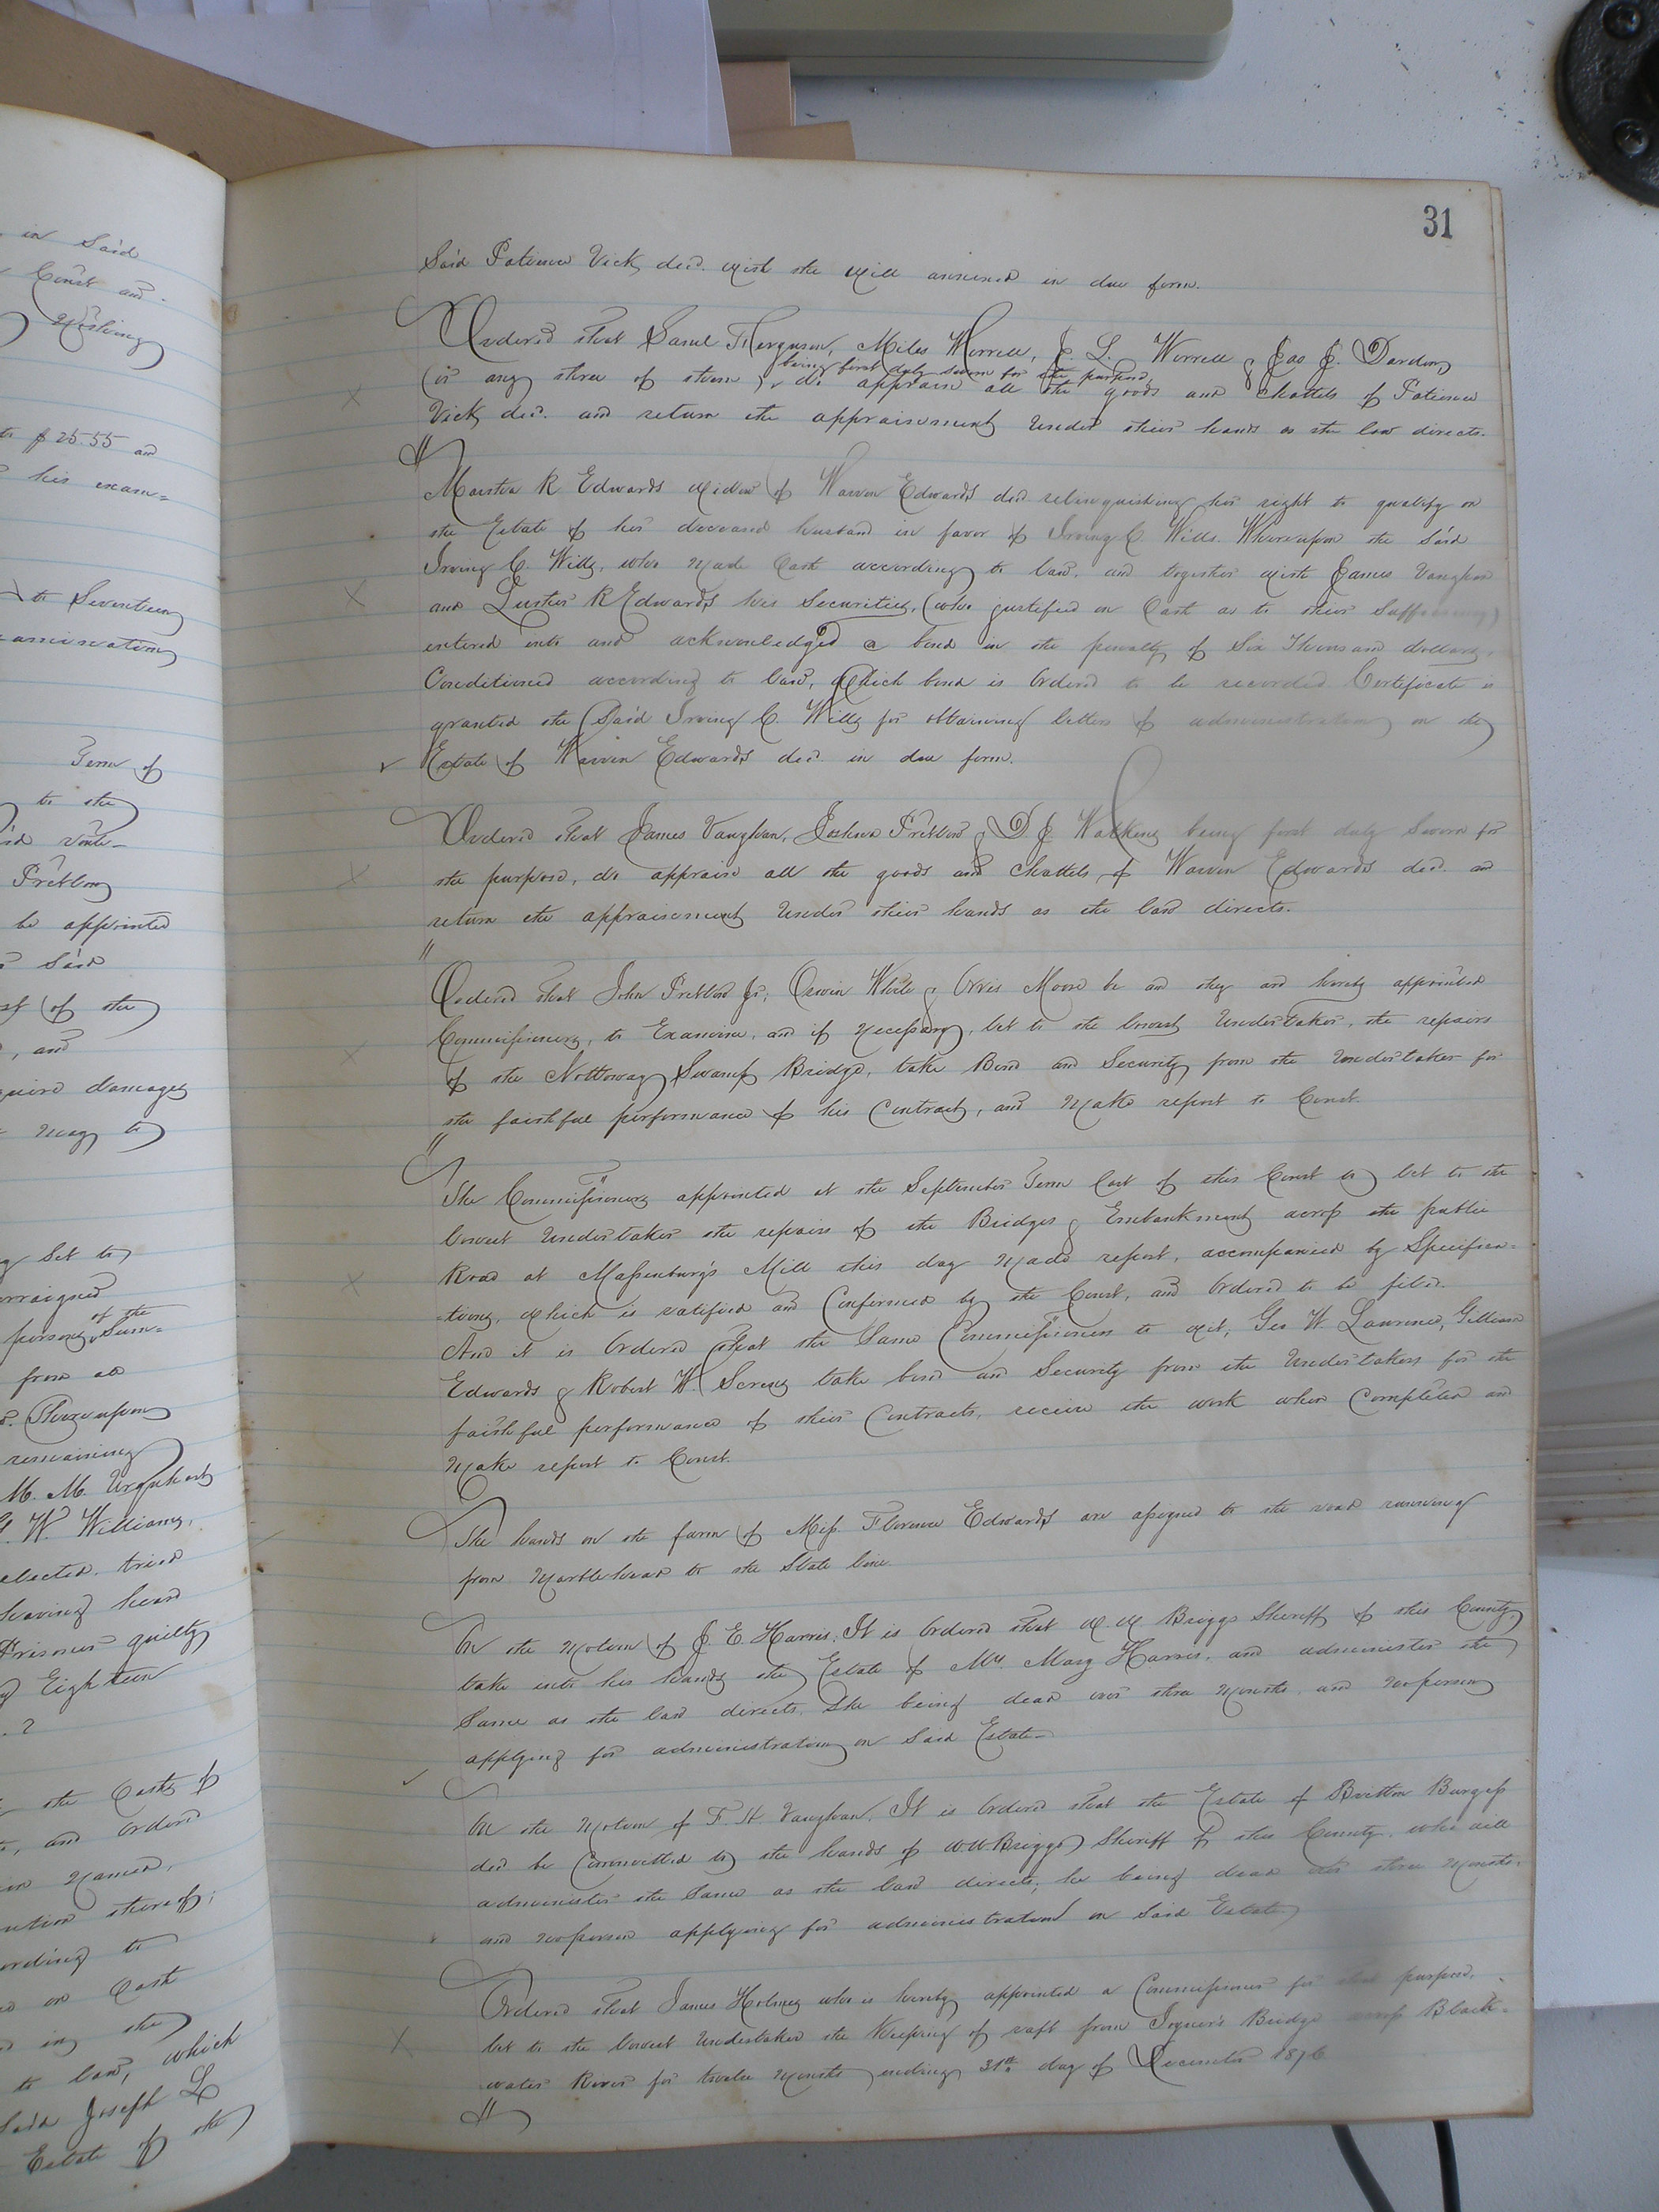 in Said
Court and
Wishing
to $25.55 and
his exam=
to Seventeen
amination
Term of
to the
Pretlow
be appointed
Said
of the
, and
quire damages
may be
Set to
arraigned
of the
persons Sum=
from as
Thereupon
remaining
M. M. Urquhart
W. Williams,
elected. tried
having heard
Prisoner guilty
Eighteen
the Costs of
, and Ordered
in Named,
thereof;
ording to
on Oath
in the
to law, which
Said Joseph L
Estate of the
31
Said Patience Vick, decd. with the will annexed in due form.
Ordered that Saml Ferguson, Miles Worrell, J. L. Worrell & Jas J. Darden,
being first duly sworn for the purpose,
(or any three of them) do appraise all the goods and chattels of Patience
Vick, decd. and return the appraisement under their hands as the law directs.
Martha R Edwards widow of Warren Edwards decd relinquishing her right to qualify on
the Estate of her deceased husband in favor of Irving C. Wills. Whereupon the Said
Irving C. Wills, who made Oath according to law, and together with James Vaughan
and R Edwards his Securities, (who justified on Oath as to their Sufficiency)
entered into and acknowledged a bond in the penalty of Six Thousand dollars,
Conditioned according to law, Which bond is Ordered to be recorded. Certificate is
granted the Said Irving C. Wills for obtaining letters of administration on the
Estate of Warren Edwards decd. in due form.
Ordered that James Vaughan, Joshua Pretlow & D. J. Watkins being first duly Sworn for
the purpose, do appraise all the goods and chattels of Warren Edwards decd. and
return the appraisement under their hands as the law directs.
Ordered that John Pretlow Jr, Orwin White & Orris Moore be and they are hereby appointed
Commissioners, to Examine, and if necessary, let to the lowest Undertaker, the repairs
of the Nottoway Swamp Bridge, take Bond and Security from the undertaker for
the faithful performance of his Contract, and make report to Court.
The Commissioners appointed at the September Term last of this Court to let to the
lowest Undertaker the repairs of the Bridges & Embankment across the public
Road at Massenburg's Mill this day made report, accompanied by Specifica=
=tions, which is ratified and Confirmed by the Court, and Ordered to be filed.
And it is Ordered that the Same Commissioners to wit, Geo W. Lawrence, Gilliam
Edwards & Robert W. Screws take bond and Security from the Undertakers for the
faithful performance of their Contracts, receive the work when Completed and
make report to Court.
The hands on the farm of Miss. Florence Edwards are assigned to the road running
from Marblehead to the State line
On the Motion of J. E. Harris, It is Ordered that W. W. Briggs Sheriff of this County,
take into his hands the Estate of Mrs. Mary Harris, and administer the
Same as the law directs, She being dead over three months, and no person
applying for administration on Said Estate—
On the Motion of F. H. Vaughan, It is Ordered that the Estate of Britton Burgess
decd be Committed to the hands of W. W. Briggs Sheriff of this County, who will
administer the Same as the law directs, he being dead over three months,
and no person applying for administration on Said Estate
Ordered that James Holmes who is hereby appointed a Commissioner for that purpose,
let to the lowest Undertaker the Keeping of raft from Joyner's Bridge across Black=
water River for twelve months ending 31st day of December 1876